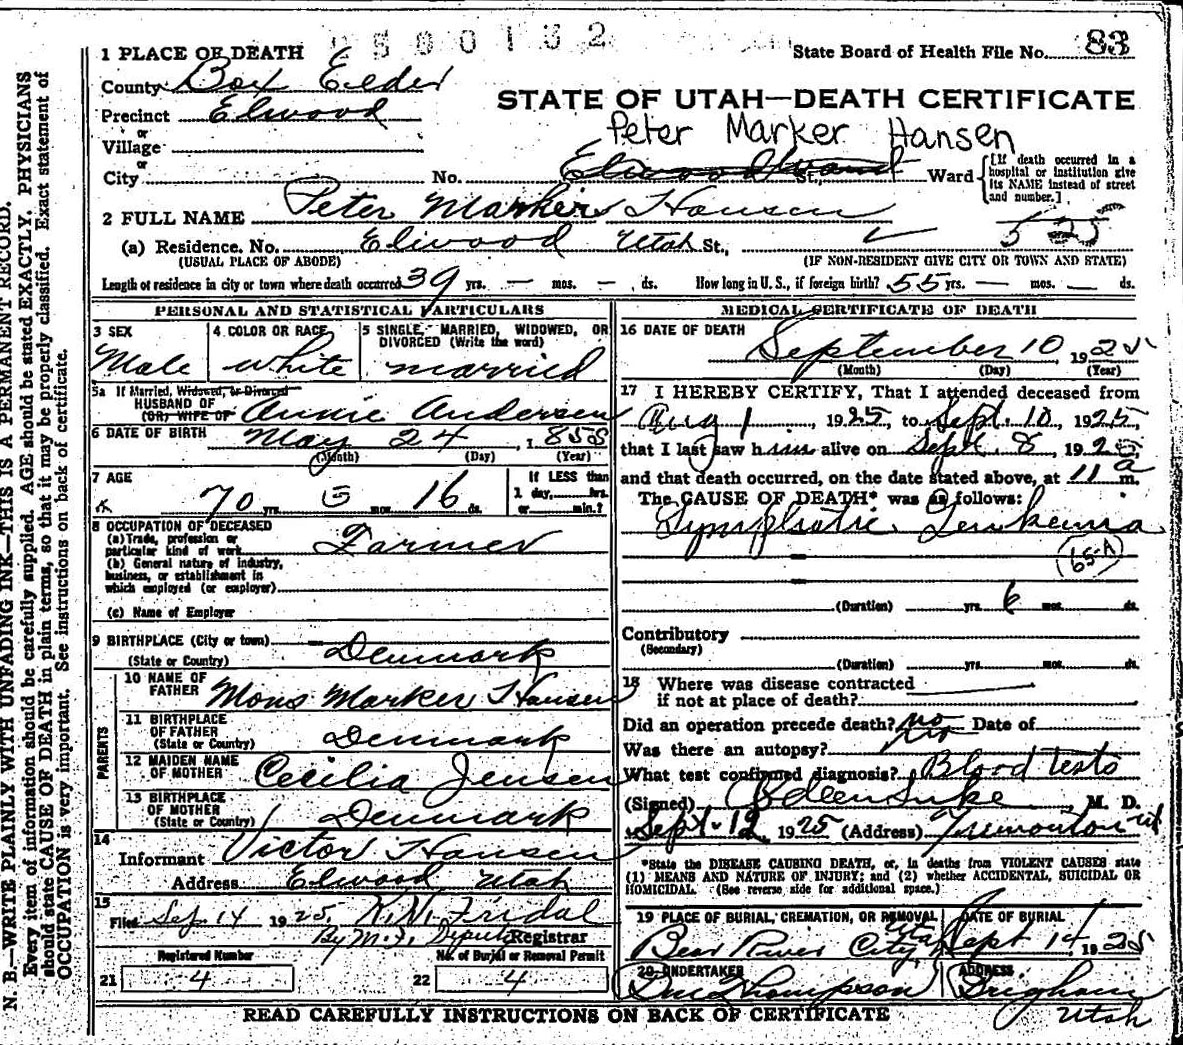 S 0 0 1 3 2
1 PLACE OF DEATH
State Board of Health File No. 83
County Box Elder
STATE OF UTAH—DEATH CERTIFICATE
Precinct Elwood
Peter Marker Hansen
or
Village
or
City No. Elwood Ward St., Ward
[If death occurred in a hospital or institution give its NAME instead of street and number.]
2 FULL NAME Peter Marker Hansen
525
(a) Residence, No. Elwood Utah St.,
(USUAL PLACE OF ABODE) (IF NON-RESIDENT GIVE CITY OR TOWN AND STATE)
Length of residence in city or town where death occurred 39 yrs. — mos. — ds. How long in U. S., if foreign birth? 55 yrs. — mos. — ds.
PERSONAL AND STATISTICAL PARTICULARS
3 SEX
Male
4 COLOR OR RACE
White
5 SINGLE, MARRIED, WIDOWED, OR DIVORCED (Write the word)
married
5a If Married, Widowed, or Divorced
HUSBAND OF
(OR) WIFE OF Annie Andersen
6 DATE OF BIRTH May 24, 1855
(Month) (Day) (Year)
7 AGE
If LESS than
1 day,......hrs.
or......min.?
70 yrs. 5 mos. 16 ds.
8 OCCUPATION OF DECEASED
(a) Trade, profession or
particular kind of work Farmer
(b) General nature of industry,
business, or establishment in
which employed (or employer)
(c) Name of Employer
9 BIRTHPLACE (City or town)
(State or Country) Denmark
PARENTS
10 NAME OF
FATHER Mons Marker Hansen
11 BIRTHPLACE
OF FATHER
(State or Country) Denmark
12 MAIDEN NAME
OF MOTHER Cecilia Jensen
13 BIRTHPLACE
OF MOTHER
(State or Country) Denmark
14
Informant Victor Hansen
Address Elwood, Utah
15
Filed Sep. 14 1925, K. N. Fridal
By M. F. Deputy Registrar
Registered Number No. of Burial or Removal Permit
21 4 22 4
MEDICAL CERTIFICATE OF DEATH
16 DATE OF DEATH
September 10 1925
(Month) (Day) (Year)
17 I HEREBY CERTIFY, That I attended deceased from
Aug 1, 1925, to Sept. 10, 1925,
that I last saw him alive on Sept. 8, 1925,
and that death occurred, on the date stated above, at 11 a m.
The CAUSE OF DEATH* was as follows:
Lymphatic Leukemia
65-A
(Duration) yrs. 6 mos. ds.
Contributory
(Secondary)
(Duration) yrs. mos. ds.
18 Where was disease contracted
if not at place of death?
Did an operation precede death? no Date of
Was there an autopsy? no
What test confirmed diagnosis? Blood tests
(Signed) Luke, M. D.
Sept. 12, 1925 (Address) Tremonton Ut
*State the DISEASE CAUSING DEATH, or, in deaths from VIOLENT CAUSES state
(1) MEANS AND NATURE OF INJURY; and (2) whether ACCIDENTAL, SUICIDAL OR
HOMICIDAL. (See reverse side for additional space.)
19 PLACE OF BURIAL, CREMATION, OR REMOVAL
Bear River City, Utah
DATE OF BURIAL
Sept 14, 1925
20 UNDERTAKER
Thompson
ADDRESS
Brigham
Utah
READ CAREFULLY INSTRUCTIONS ON BACK OF CERTIFICATE
N. B.—WRITE PLAINLY WITH UNFADING INK—THIS IS A PERMANENT RECORD.
Every item of information should be carefully supplied. AGE should be stated EXACTLY. PHYSICIANS
should state CAUSE OF DEATH in plain terms, so that it may be properly classified. Exact statement of
OCCUPATION is very important. See instructions on back of certificate.